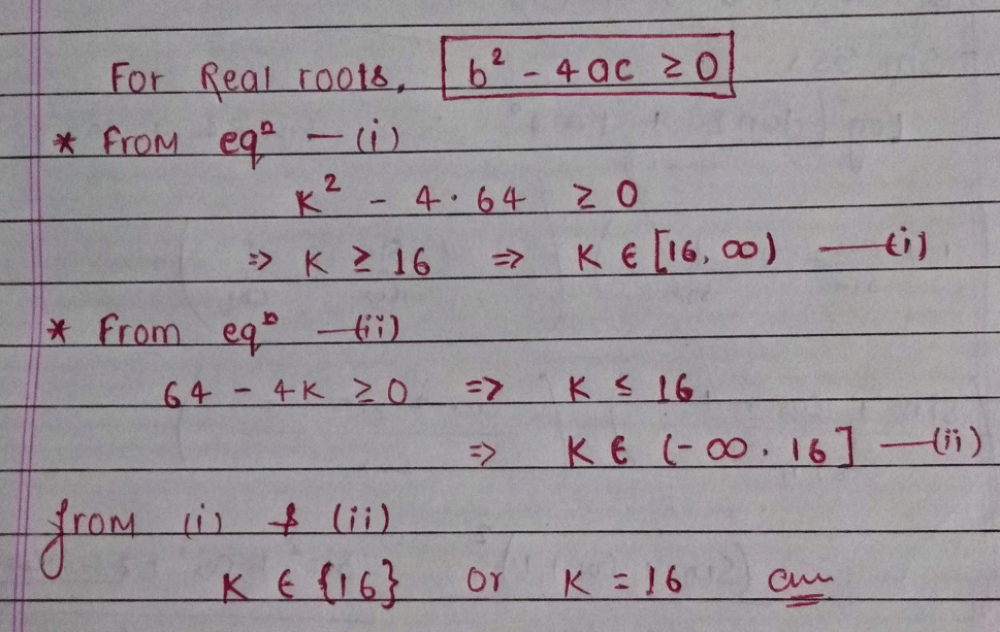 For Real roots, b² - 4ac ≥ 0
* From eqⁿ — (i)
K² - 4·64 ≥ 0
⇒ K ≥ 16 ⇒ K ∈ [16, ∞) —(i)
* From eqⁿ —(ii)
64 - 4K ≥ 0 ⇒ K ≤ 16
⇒ K ∈ (-∞, 16] —(ii)
from (i) & (ii)
K ∈ {16} or K = 16 ans